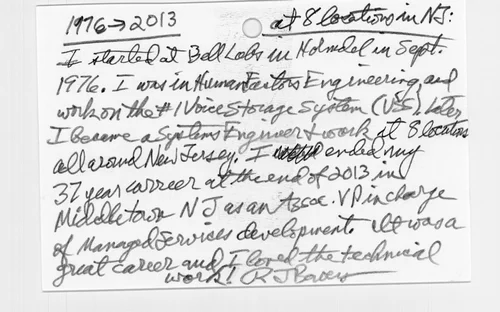 1976→2013 at 8 locations in NJ:
I started at Bell Labs in Holmdel in Sept.
1976. I was in Human Factors Engineering and
work on the #1 Voice Storage System (VSS). Later
I became a Systems Engineer & work at 8 locations
all around New Jersey. I ended my
37 year carreer at the end of 2013 in
Middletown NJ as an Assoc. VP in charge
of Managed Services development. It was a
great career and I loved the technical
work! R J